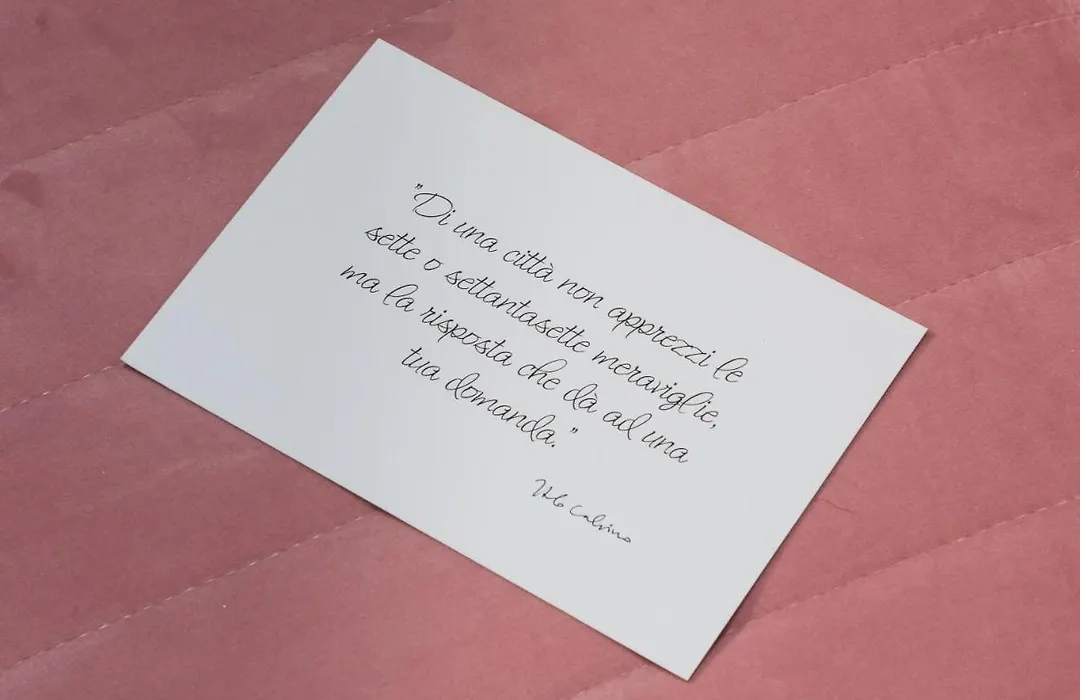 "Di una città non apprezzi le
sette o settantasette meraviglie,
ma la risposta che dà ad una
tua domanda."
Italo Calvino